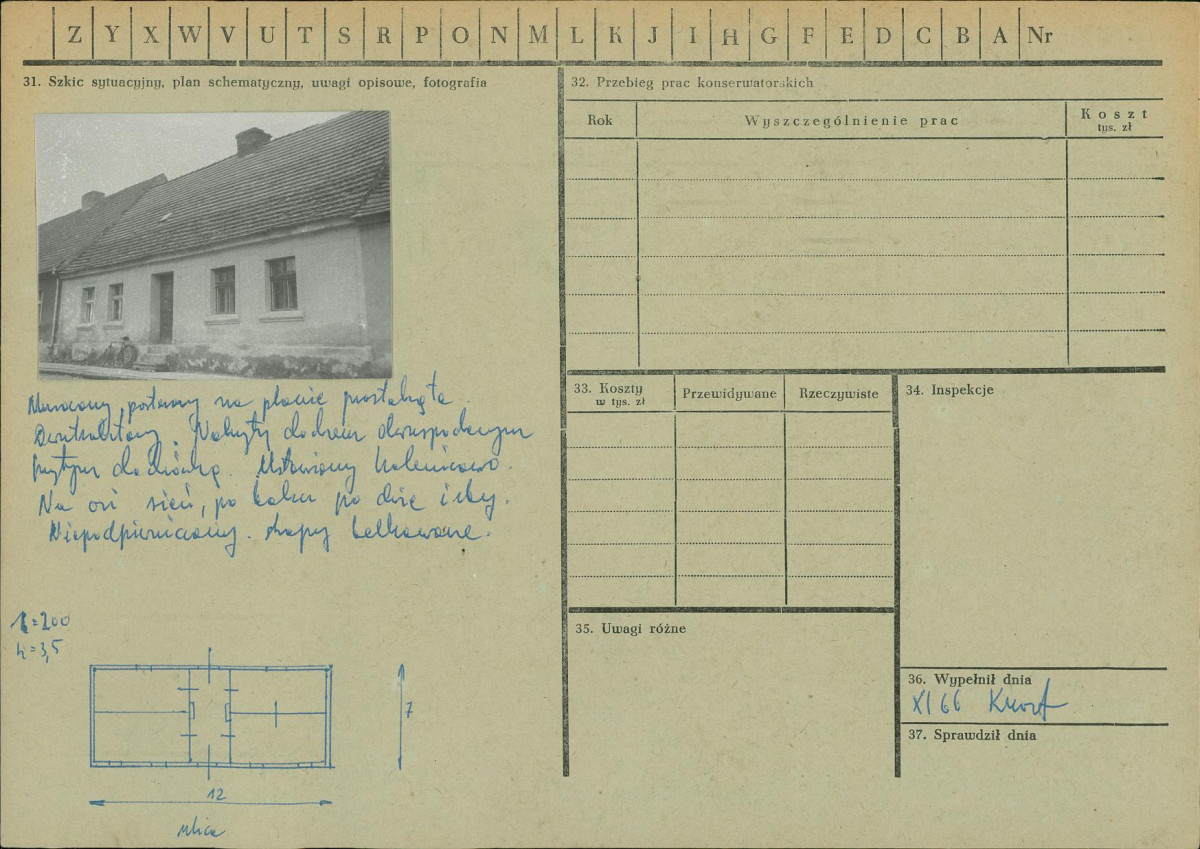 Z Y X W V U T S R P O N M L K J I H G F E D C B A Nr
31. Szkic sytuacyjny, plan schematyczny, uwagi opisowe, fotografia
Murowany, parterowy na planie prostokąta.
Dwutraktowy. Nakryty dachem dwuspadowym
krytym dachówką. Ustawiony kalenicowo.
Na osi sień, po boku po dwie izby.
Niepodpiwniczony. Stropy belkowane.
1:200
h=3,5
7
12
ulica
32. Przebieg prac konserwatorskich
Rok
Wyszczególnienie prac
Koszt
tys. zł
33. Koszty
w tys. zł
Przewidywane
Rzeczywiste
34. Inspekcje
35. Uwagi różne
36. Wypełnił dnia
XI 66
37. Sprawdził dnia